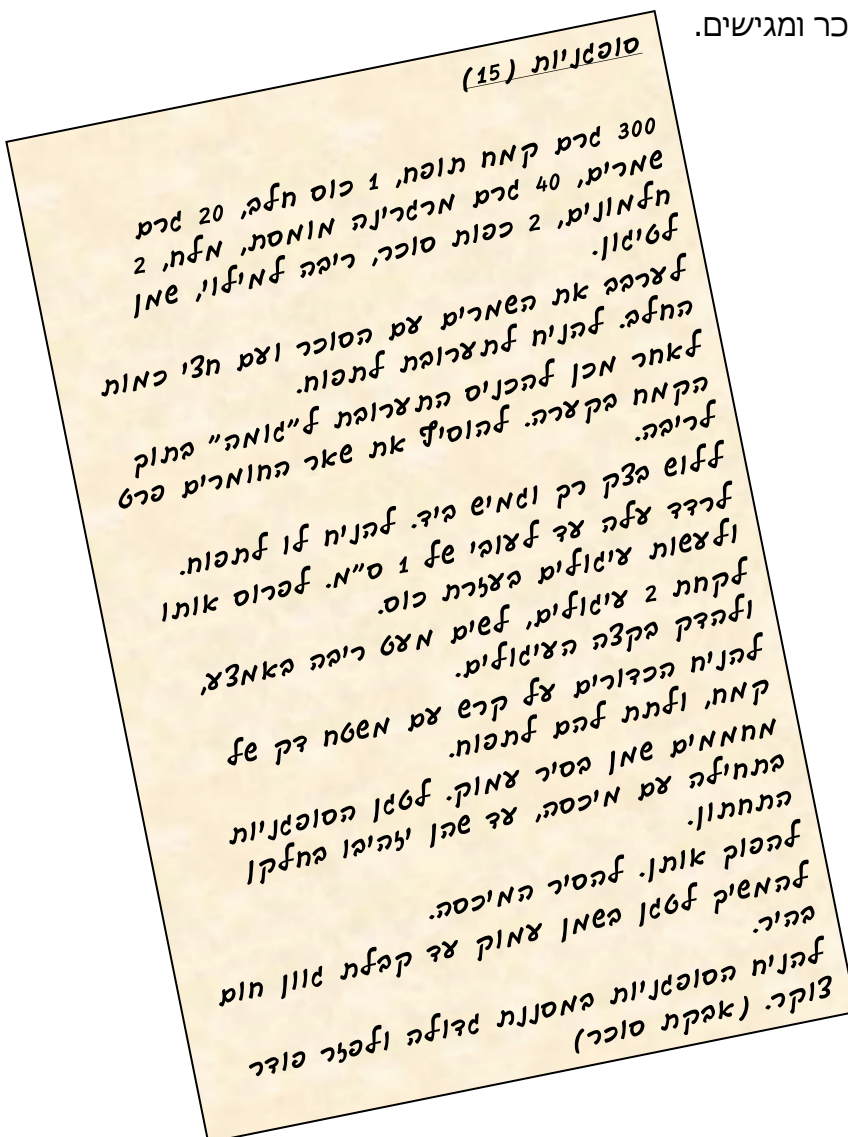 כר ומגישים.
סופגניות (15)
300 גרם קמח תופח, 1 כוס חלב, 20 גרם
שמרים, 40 גרם מרגרינה מומסת, מלח, 2
חלמונים, 2 כפות סוכר, ריבה למילוי, שמן
לטיגון.
לערבב את השמרים עם הסוכר ועם חצי כמות
החלב. להניח לתערובת לתפוח.
לאחר מכן להכניס התערובת ל"גומה" בתוך
הקמח בקערה. להוסיף את שאר החומרים פרט
לריבה.
ללוש בצק רק וגמיש ביד. להניח לו לתפוח.
לרדד עלה עד לעובי של 1 ס"מ. לפרוס אותו
ולעשות עיגולים בעזרת כוס.
לקחת 2 עיגולים, לשים מעט ריבה באמצע,
ולהדק בקצה העיגולים.
להניח הכדורים על קרש עם משטח דק של
קמח, ולתת להם לתפוח.
מחממים שמן בסיר עמוק. לטגן הסופגניות
בתחילה עם מיכסה, עד שהן יזהיבו בחלקן
התחתון.
להפוך אותן. להסיר המיכסה.
להמשיך לטגן בשמן עמוק עד קבלת גוון חום
בהיר.
להניח הסופגניות במסננת גדולה ולפזר פודר
צוקר. (אבקת סוכר)